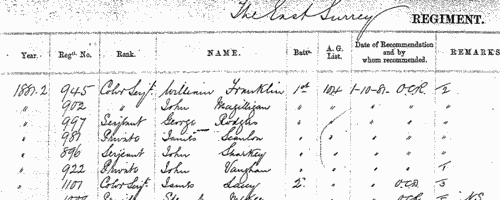 The East Surrey REGIMENT.
Year. Regtl. No. Rank. NAME. Batn. A. G. List. Date of Recommendation and by whom recommended. REMARKS
1881-2 945 Color Serjt. William Franklin 1st 104 1-10-81 O.C.R. 1/2
" 902 " John Magilligan " " " " "
" 997 Serjeant George Rodgers " " " " "
" 987 Private James Scanlon " " " " "
" 896 Serjeant John Sharkey " " " " "
" 922 Private John Vaughan " " " "
" 1101 Color Serjt. James Lacey 2. " " O.C.R.